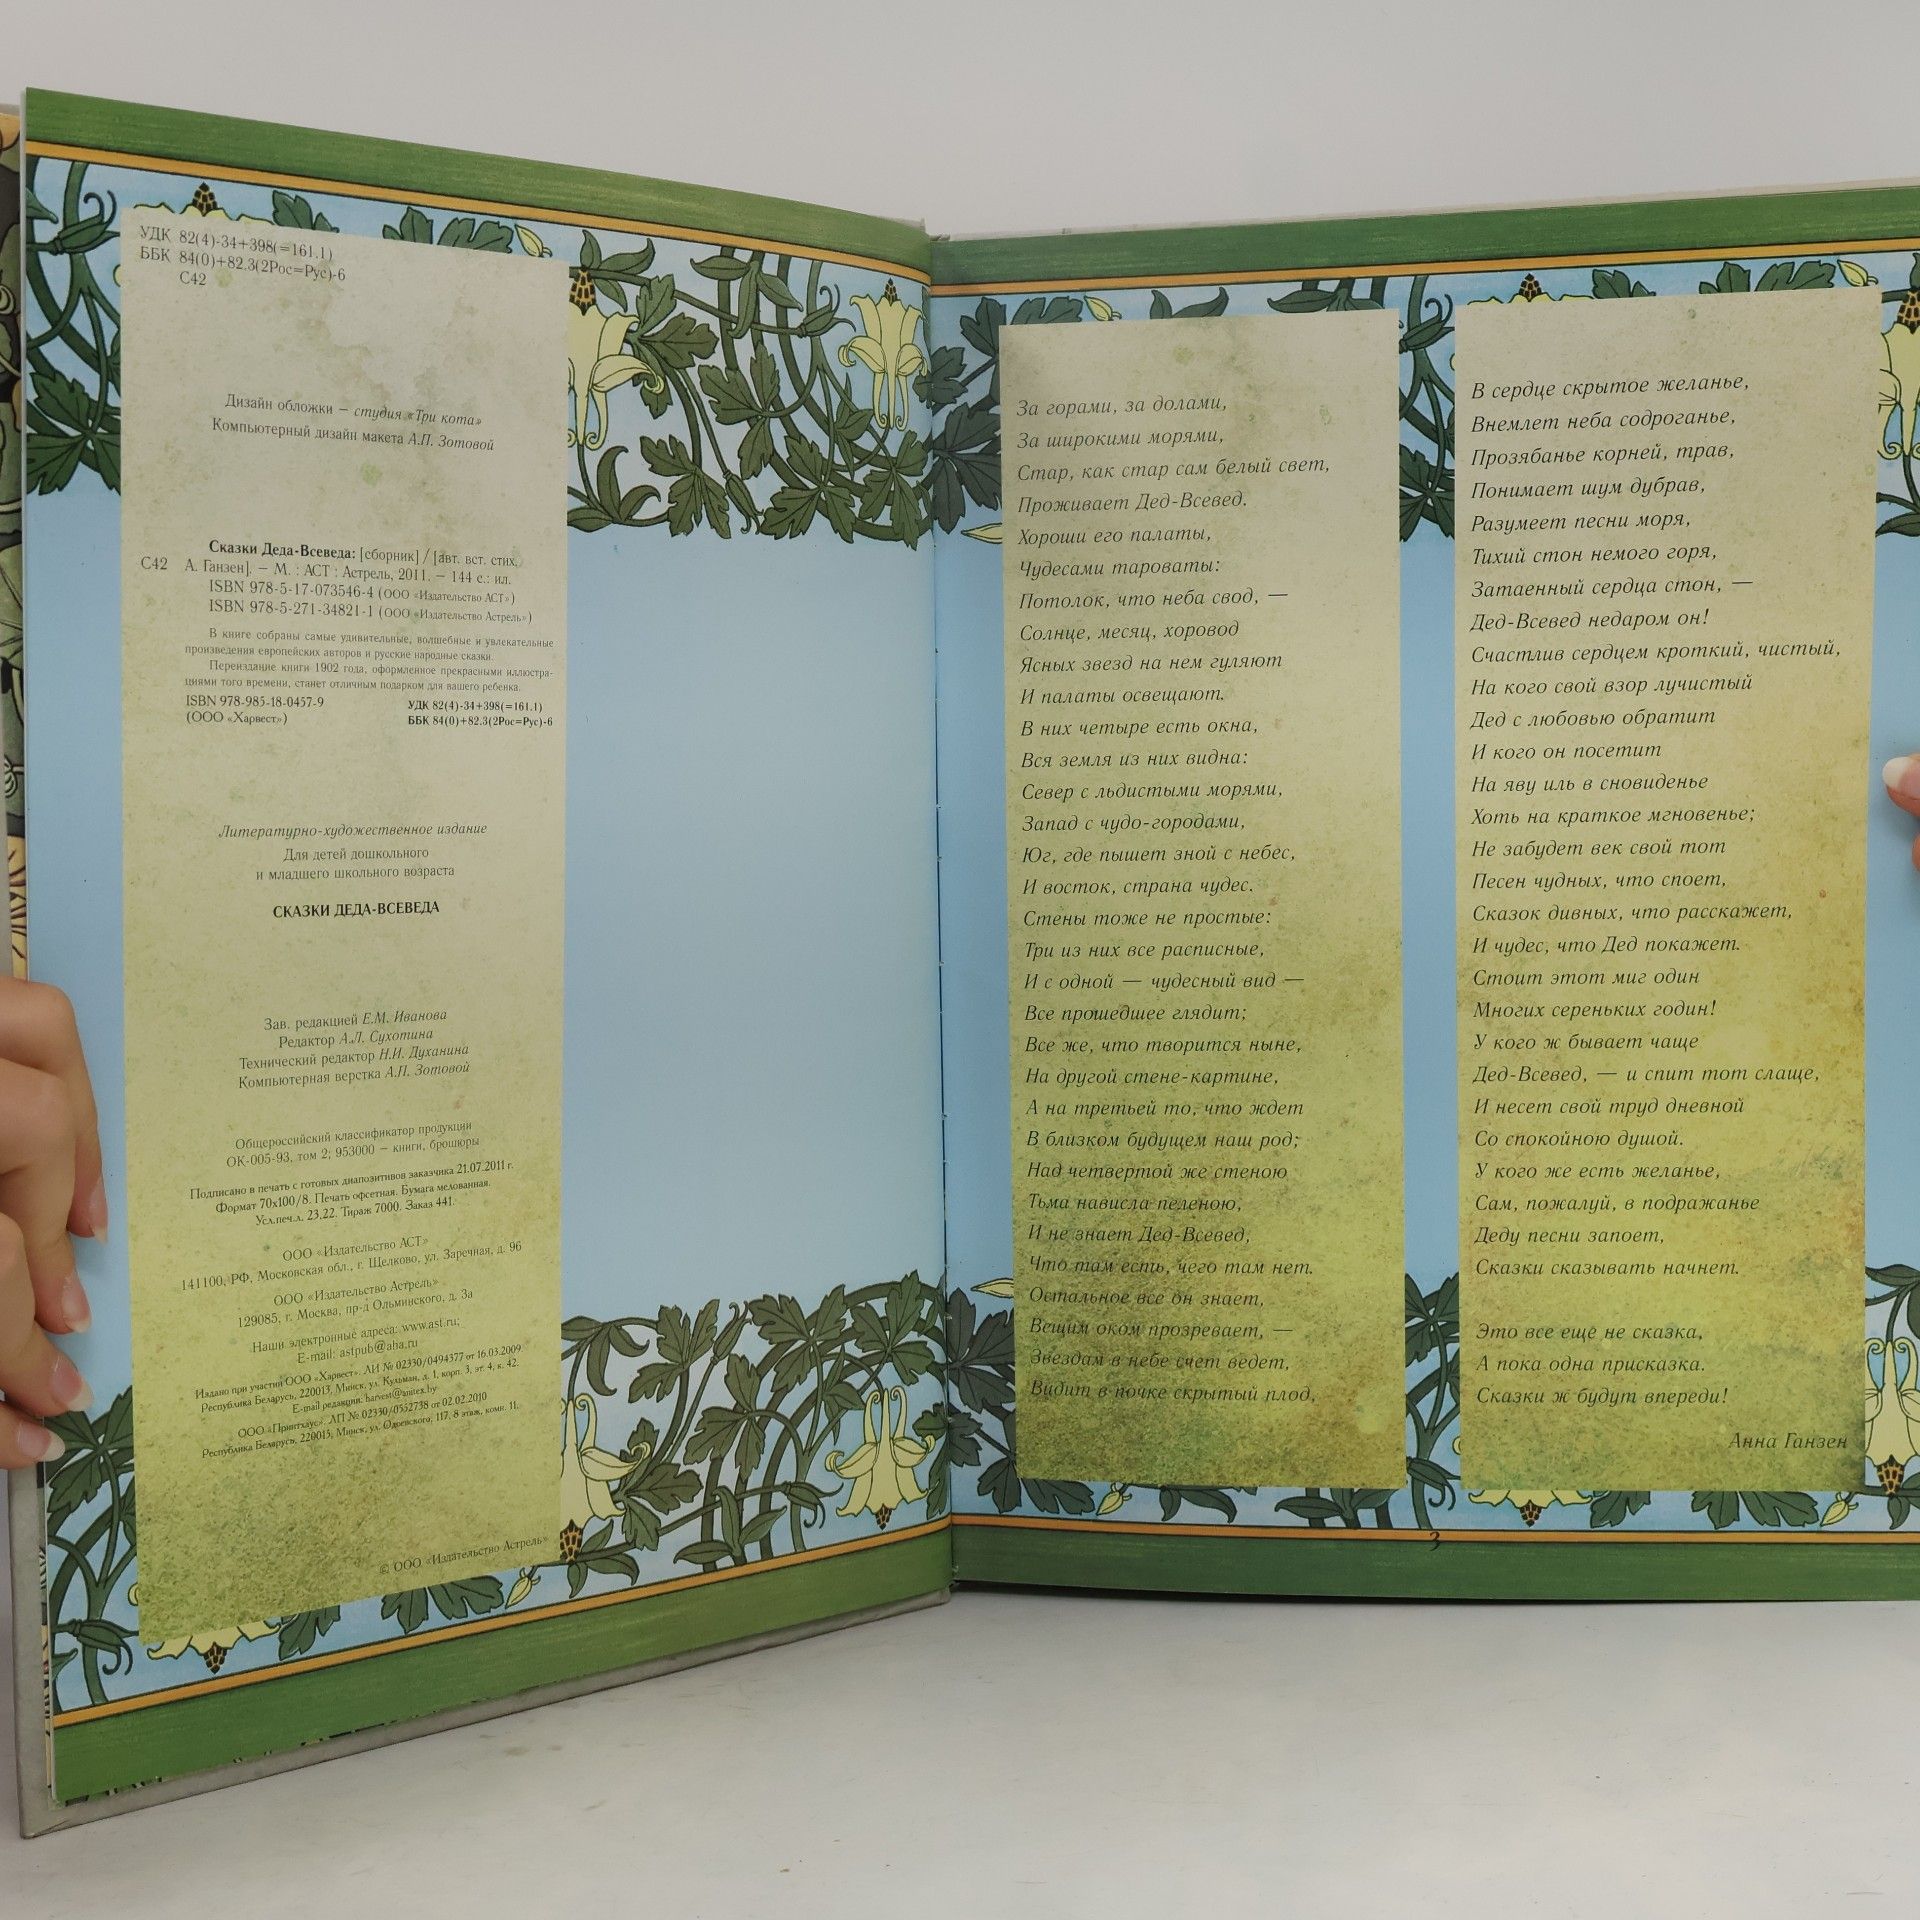 УДК 82(4)-34+398(=161.1)
ББК 84(0)+82.3(2Рос=Рус)-6
С42
Дизайн обложки – студия «Три кота»
Компьютерный дизайн макета А.П. Зотовой
Сказки Деда-Всеведа: [сборник] / [авт. вст. стих.
С42 А. Ганзен]. – М. : АСТ : Астрель, 2011. – 144 с.: ил.
ISBN 978-5-17-073546-4 (ООО «Издательство АСТ»)
ISBN 978-5-271-34821-1 (ООО «Издательство Астрель»)
В книге собраны самые удивительные, волшебные и увлекательные
произведения европейских авторов и русские народные сказки.
Переиздание книги 1902 года, оформленное прекрасными иллюстра-
циями того времени, станет отличным подарком для вашего ребенка.
ISBN 978-985-18-0457-9
(ООО «Харвест»)
УДК 82(4)-34+398(=161.1)
ББК 84(0)+82.3(2Рос=Рус)-6
Литературно-художественное издание
Для детей дошкольного
и младшего школьного возраста
СКАЗКИ ДЕДА-ВСЕВЕДА
Зав. редакцией Е.М. Иванова
Редактор А.Л. Сухотина
Технический редактор Н.И. Духанина
Компьютерная верстка А.П. Зотовой
Общероссийский классификатор продукции
ОК-005-93, том 2; 953000 – книги, брошюры
Подписано в печать с готовых диапозитивов заказчика 21.07.2011 г.
Формат 70x100/8. Печать офсетная. Бумага мелованная.
Усл.печ.л. 23,22. Тираж 7000. Заказ 441.
ООО «Издательство АСТ»
141100, РФ, Московская обл., г. Щелково, ул. Заречная, д. 96
ООО «Издательство Астрель»
129085, г. Москва, пр-д Ольминского, д. 3а
Наши электронные адреса: www.ast.ru;
E-mail: astpub@aha.ru
Издано при участии ООО «Харвест». ЛИ № 02330/0494377 от 16.03.2009.
Республика Беларусь, 220013, Минск, ул. Кульман, д. 1, корп. 3, эт. 4, к. 42.
E-mail редакции: harvest@anitex.by
ООО «Принтхаус». ЛП № 02330/0552738 от 02.02.2010
Республика Беларусь, 220015, Минск, ул. Одоевского, 117, 8 этаж, комн. 11.
© ООО «Издательство Астрель»
За горами, за долами,
За широкими морями,
Стар, как стар сам белый свет,
Проживает Дед-Всевед.
Хороши его палаты,
Чудесами тароваты:
Потолок, что неба свод, —
Солнце, месяц, хоровод
Ясных звезд на нем гуляют
И палаты освещают.
В них четыре есть окна,
Вся земля из них видна:
Север с льдистыми морями,
Запад с чудо-городами,
Юг, где пышет зной с небес,
И восток, страна чудес.
Стены тоже не простые:
Три из них все расписные,
И с одной — чудесный вид —
Все прошедшее глядит;
Все же, что творится ныне,
На другой стене-картине,
А на третьей то, что ждет
В близком будущем наш род;
Над четвертой же стеною
Тьма нависла пеленою,
И не знает Дед-Всевед,
Что там есть, чего там нет.
Остальное все он знает,
Вещим оком прозревает, —
Звездам в небе счет ведет,
Видит в почке скрытый плод,
В сердце скрытое желанье,
Внемлет неба содроганье,
Прозябанье корней, трав,
Понимает шум дубрав,
Разумеет песни моря,
Тихий стон немого горя,
Затаенный сердца стон, —
Дед-Всевед недаром он!
Счастлив сердцем кроткий, чистый,
На кого свой взор лучистый
Дед с любовью обратит
И кого он посетит
На яву иль в сновиденье
Хоть на краткое мгновенье;
Не забудет век свой тот
Песен чудных, что споет,
Сказок дивных, что расскажет,
И чудес, что Дед покажет.
Стоит этот миг один
Многих сереньких годин!
У кого ж бывает чаще
Дед-Всевед, — и спит тот слаще,
И несет свой труд дневной
Со спокойною душой.
У кого же есть желанье,
Сам, пожалуй, в подражанье
Деду песни запоет,
Сказки сказывать начнет.
Это все ещё не сказка,
А пока одна присказка.
Сказки ж будут впереди!
Анна Ганзен
3